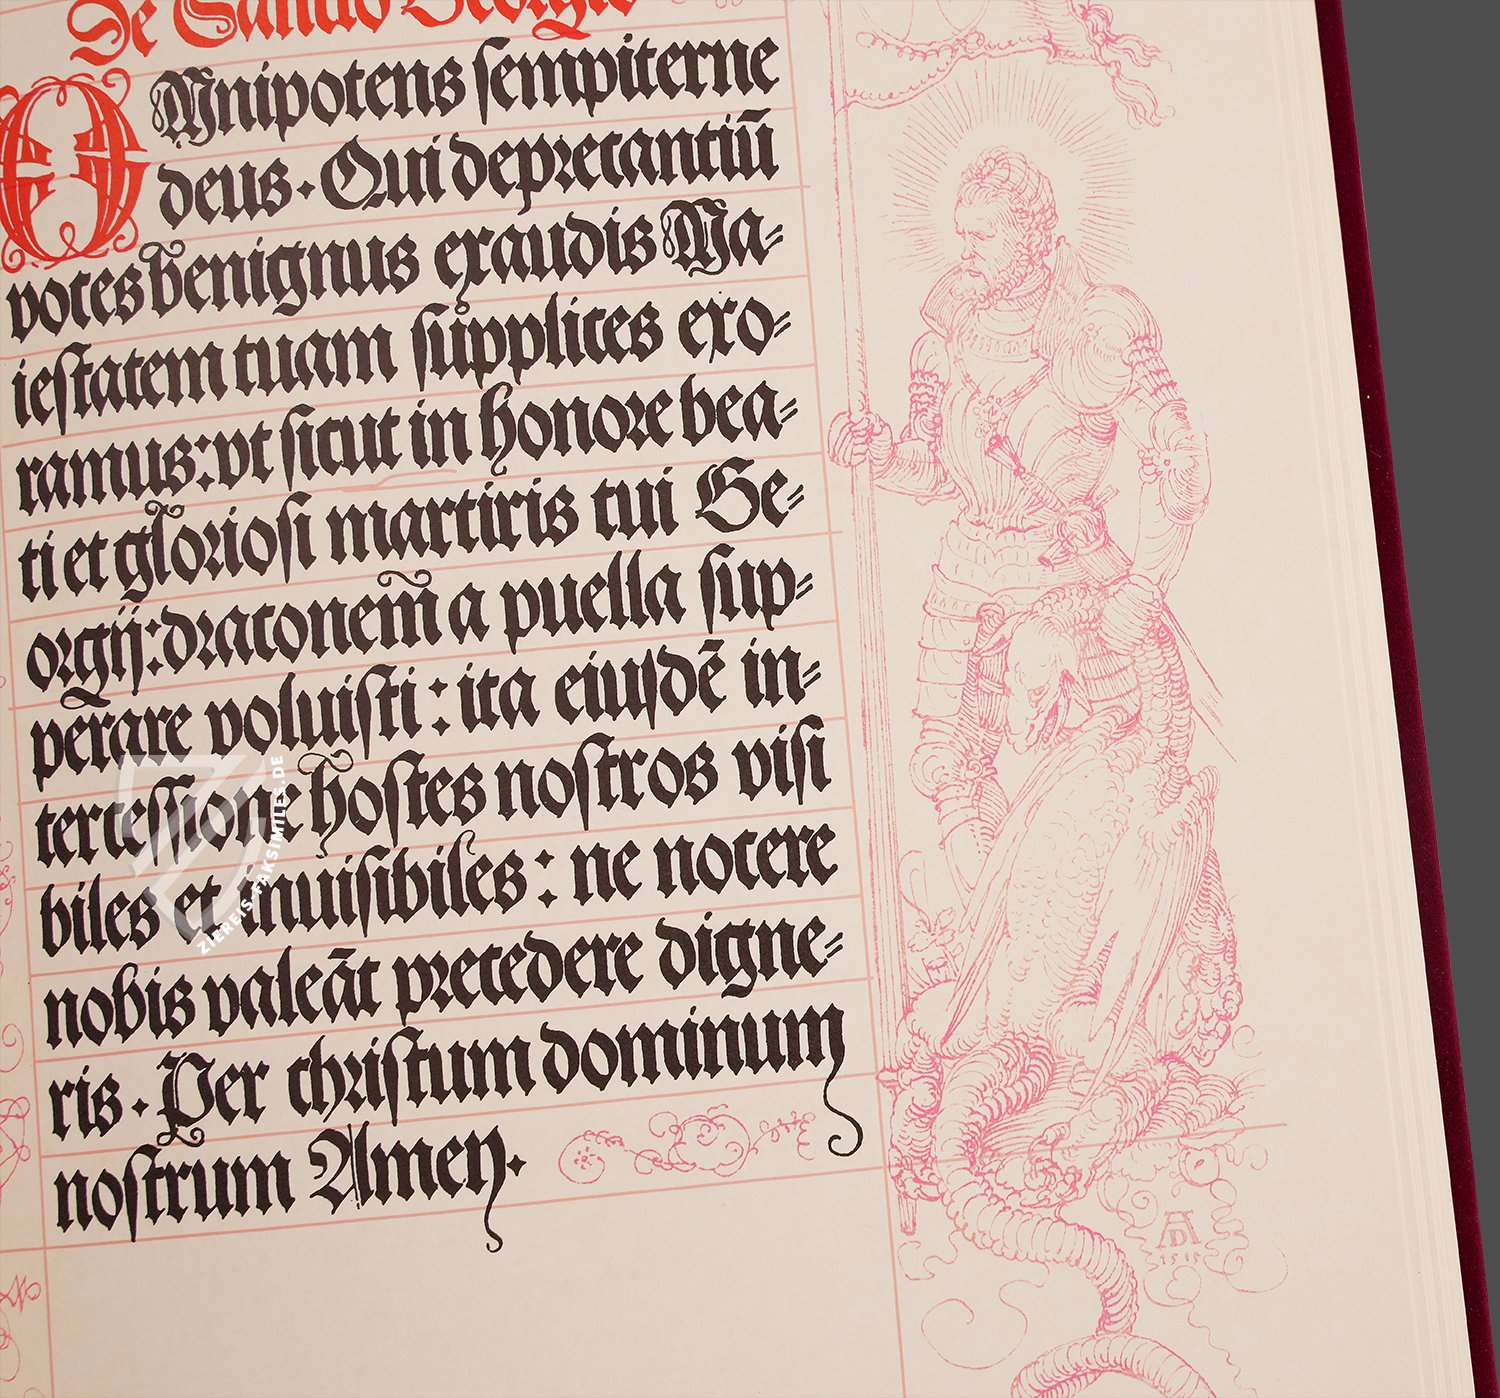 De Sancto Georgio
OMnipotens sempiterne
deus. Qui deprecantiū
voces benignus exaudis Ma-
iestatem tuam supplices exo-
ramus: vt sicut in honore bea-
ti et gloriosi martiris tui Ge-
orgij: draconem̄ a puella sup-
perare voluisti: ita eiusdē in-
tercessione hostes nostros visi
biles et inuisibiles: ne nocere
nobis valeāt precedere digne-
ris. Per christum dominum
nostrum Amen.
AD
1515
ZIEREIS-FAKSIMILES.DE